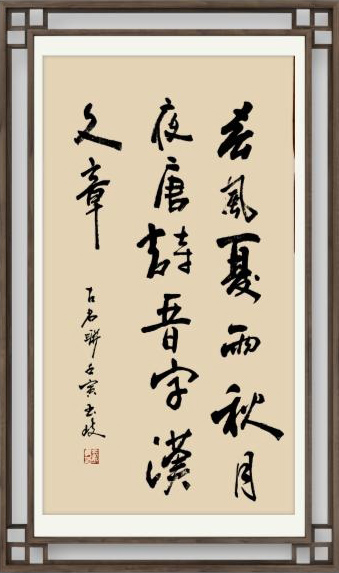 春風夏雨秋月
夜唐詩晉字漢
文章
古名聯壬寅玉陵